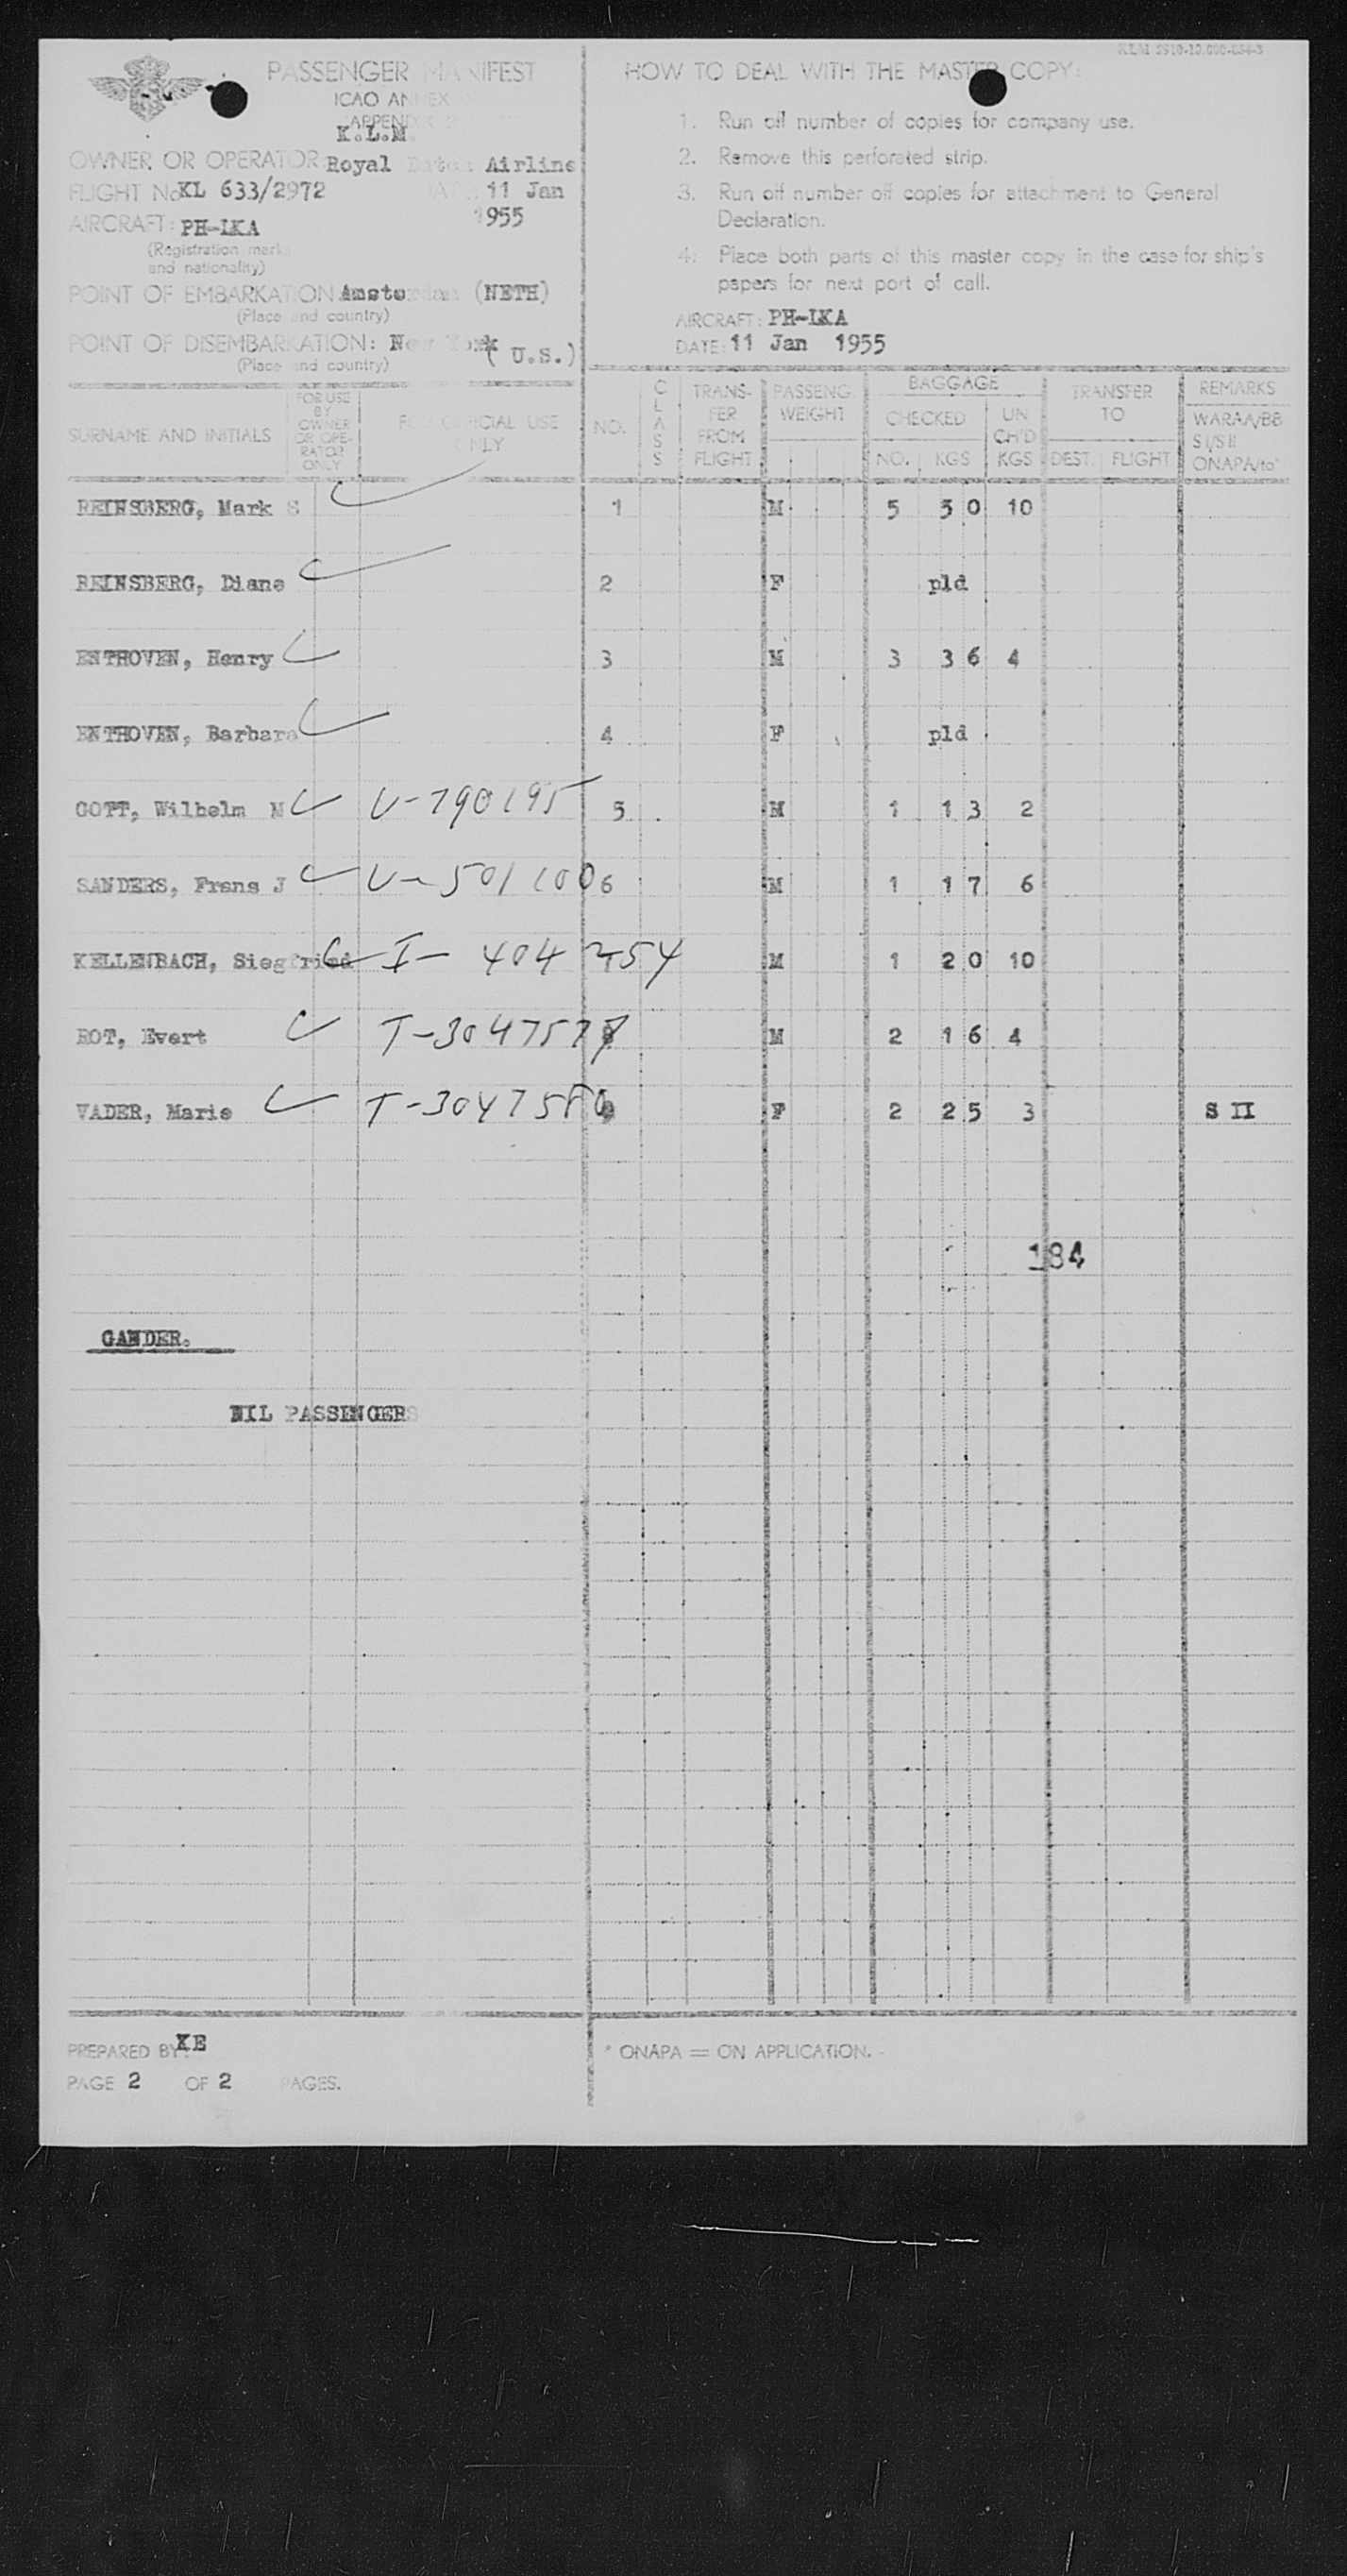 KLM 2910-10.000-654-3
PASSENGER MANIFEST
ICAO ANNEX
APPENDIX
K.L.M.
OWNER OR OPERATOR Royal Dutch Airline
FLIGHT No KL 633/2972 DATE: 11 Jan
1955
AIRCRAFT: PH-LKA
(Registration marks
and nationality)
POINT OF EMBARKATION Amsterdam (NETH)
(Place and country)
POINT OF DISEMBARKATION: New York ( U.S.)
(Place and country)
HOW TO DEAL WITH THE MASTER COPY:
1. Run off number of copies for company use.
2. Remove this perforated strip.
3. Run off number off copies for attachment to General
Declaration.
4. Place both parts of this master copy in the case for ship's
papers for next port of call.
AIRCRAFT: PH-LKA
DATE: 11 Jan 1955
SURNAME AND INITIALS
FOR USE
BY
OWNER
OR OPE-
RATOR
ONLY
FOR OFFICIAL USE
ONLY
NO.
CLASS
TRANS-
FER
FROM
FLIGHT
PASSENG
WEIGHT
BAGGAGE
CHECKED
NO. KGS
UN
CH'D
KGS
TRANSFER
TO
DEST. FLIGHT
REMARKS
WARAA/BB
SI/SII
ONAPA/to*
REINSBERG, Mark S 1 M 5 50 10
REINSBERG, Diane 2 F pld
ENTHOVEN, Henry 3 M 3 36 4
ENTHOVEN, Barbara 4 F pld
GOTT, Wilhelm M V-790195 5 M 1 13 2
SANDERS, Frans J V-501100 6 M 1 17 6
KELLENBACH, Siegfried I-404254 M 1 20 10
ROT, Evert T-3047577 M 2 16 4
VADER, Marie T-3047580 F 2 25 3 S II
184
GANDER.
NIL PASSENGERS
PREPARED BY: KE
PAGE 2 OF 2 PAGES.
* ONAPA = ON APPLICATION.